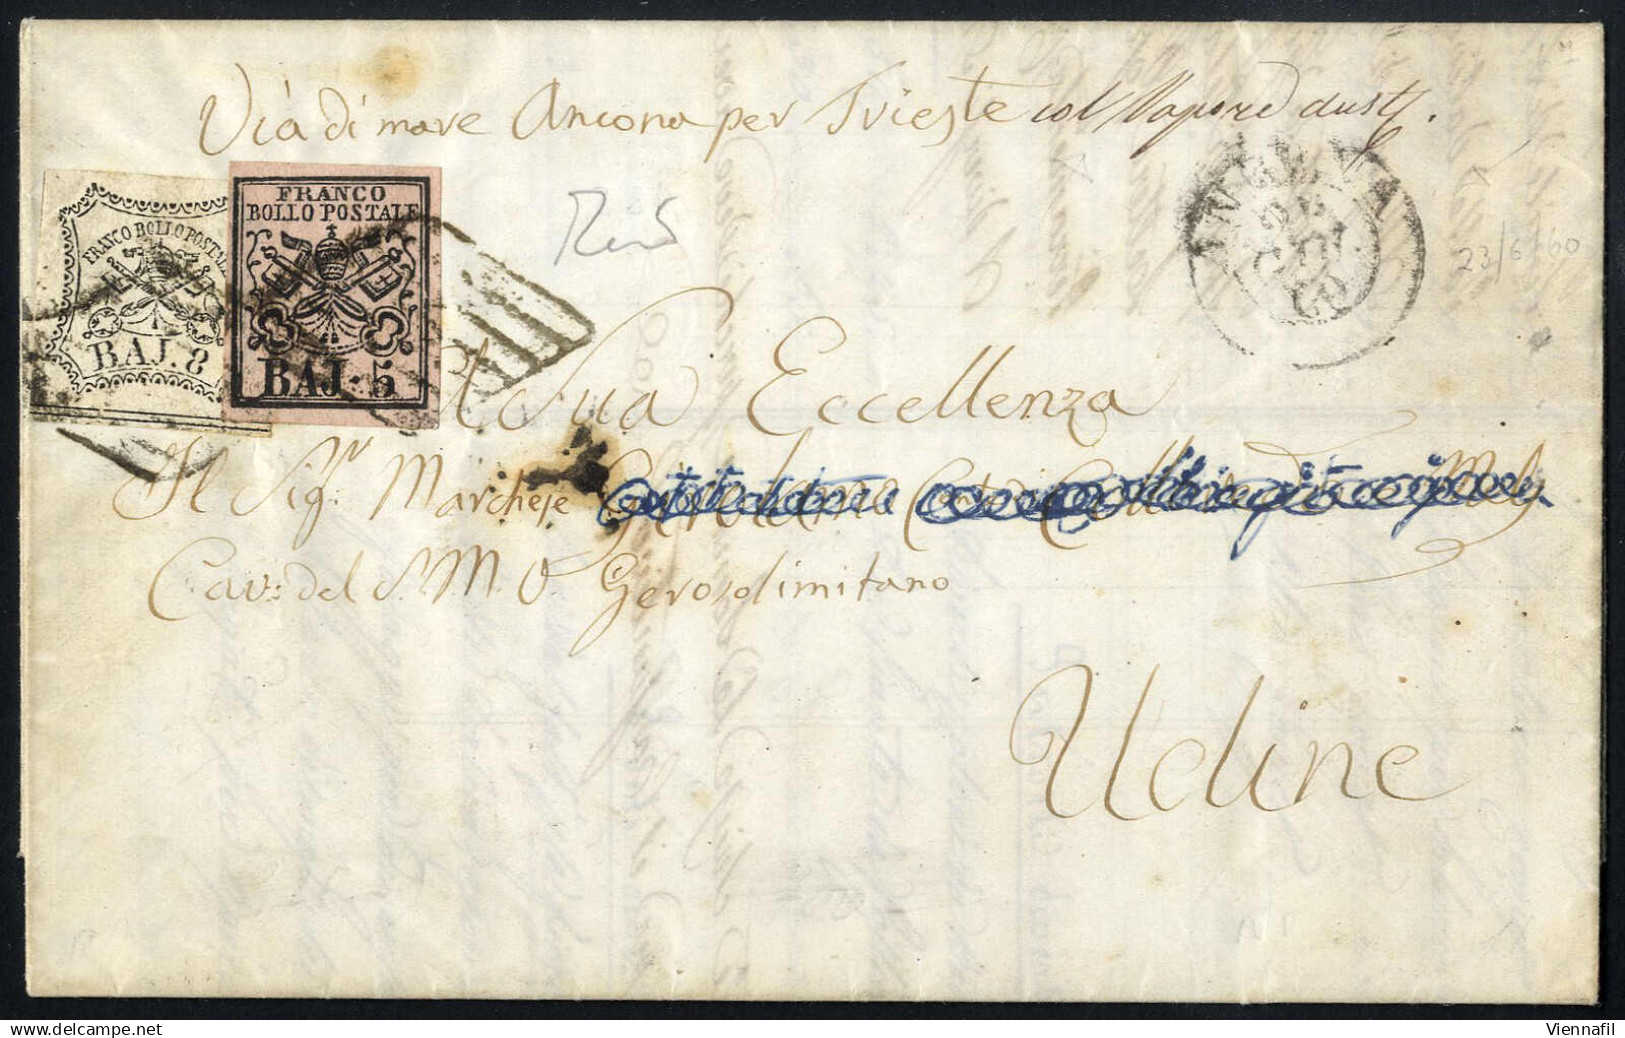 Via di mare Ancona per Trieste col Vapore aust.
FRANCO BOLLO POSTALE
BAJ. 8
FRANCO
BOLLO POSTALE
BAJ. 5
ANCONA
GIU
60
23/6 60
A Sua Eccellenza
Il Sigr. Marchese
Cav: del S. M. O Gerosolimitano
Udine
Viennafil